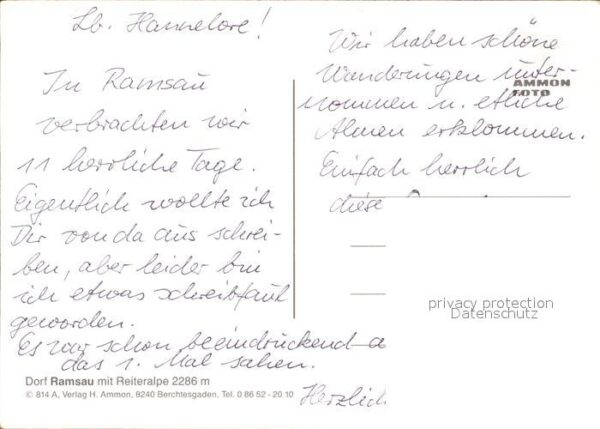 Lb. Hannelore!
In Ramsau
verbrachten wir
11 herrliche Tage.
Eigentlich wollte ich
Dir von da aus schrei-
ben, aber leider bin
ich etwas schreibfaul
geworden.
Es war schon beeindruckend
das 1. Mal sahen.
Wir haben schöne
Wanderungen unter-
nommen u. etliche
Almen erklommen.
Einfach herrlich
diese
Herzlich
AMMON
FOTO
privacy protection
Datenschutz
Dorf Ramsau mit Reiteralpe 2286 m
© 814 A, Verlag H. Ammon, 8240 Berchtesgaden, Tel. 0 86 52 - 20 10